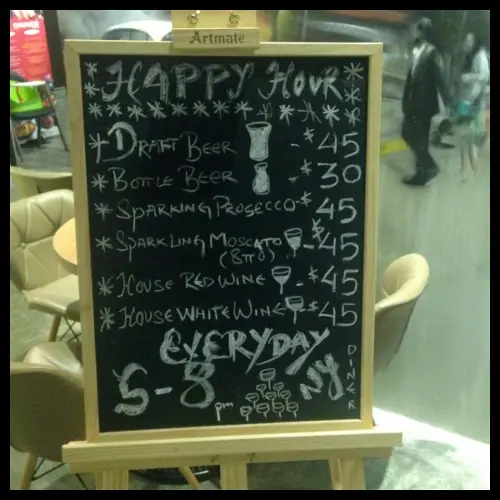 Artmate
HAPPY HOUR
DRAFT BEER - $45
BOTTLE BEER - $30
SPARKING PROSECCO - $45
SPARKLING MOSCATO - $45
HOUSE RED WINE - $45
HOUSE WHITE WINE - $45
EVERYDAY
5-8 pm
NY DINER